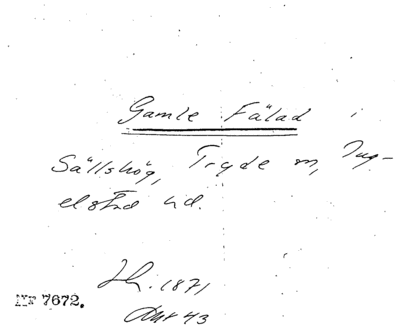 Gamle Fälad i
Sällshög, Tryde sn, Ing-
elstad hd.
1871
Akt 43
Nr 7672.